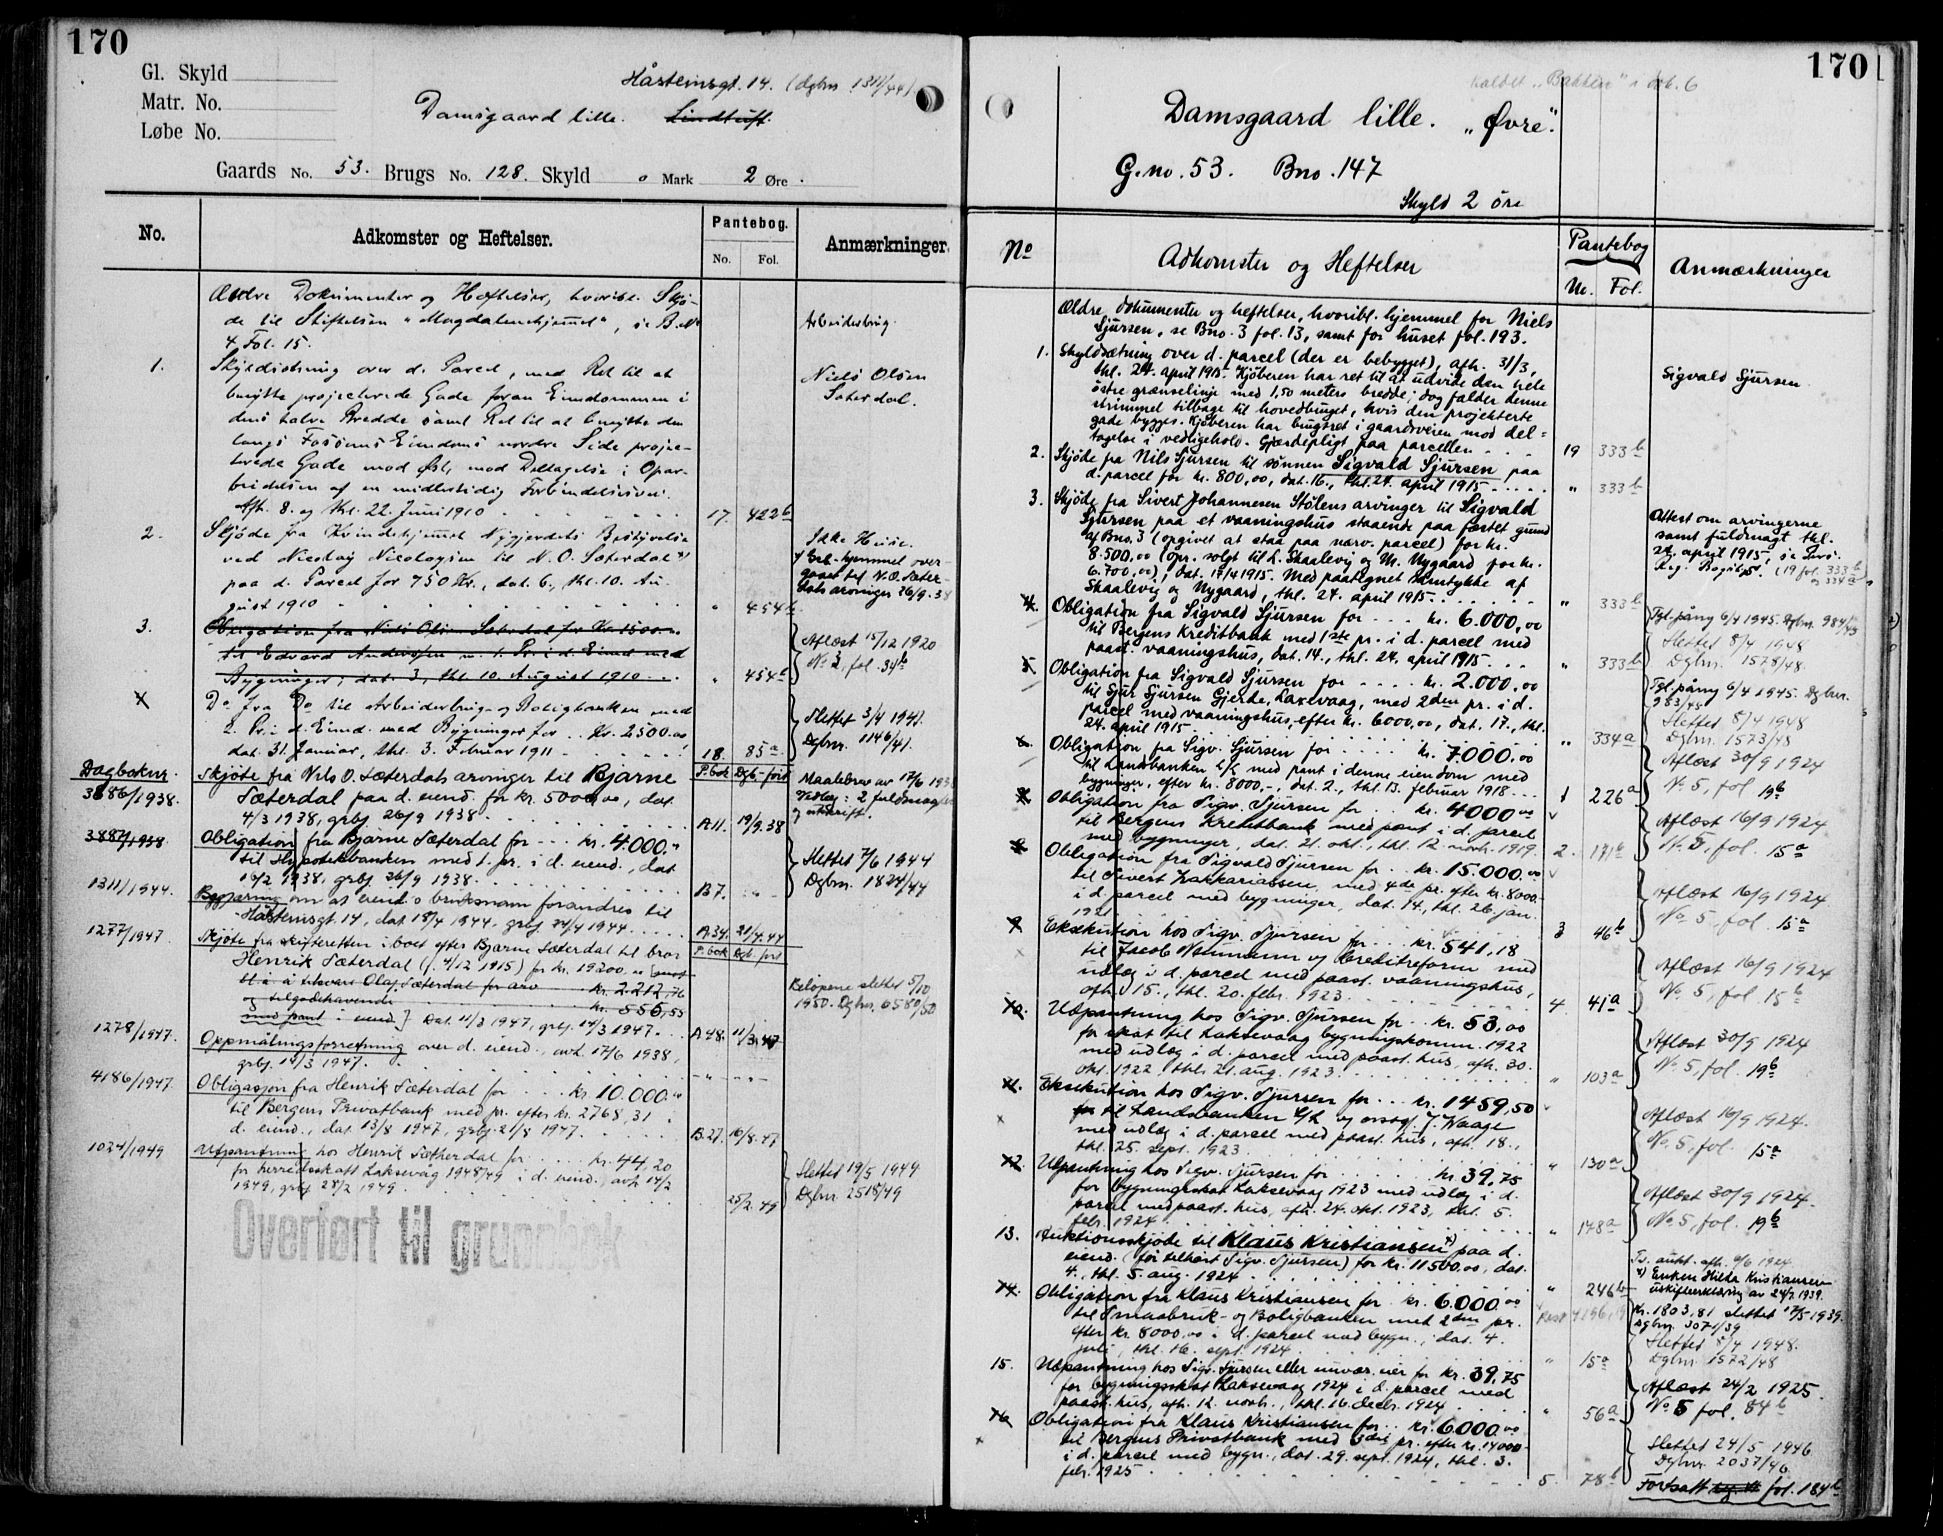 170
Gl. Skyld
Matr. No.
Løbe No.
Håsteinsgt. 14. (dgbnr 1311/44)
Damsgaard lille. Lindtuft.
Gaards No. 53. Brugs No. 128. Skyld 0 Mark 2 Øre.
No. Adkomster og Heftelser. Pantebog. Anmærkninger.
No. Fol.
Ældre Dokumenter og Heftelser, hvoribl. Skjø-
de til Stiftelsen "Magdalenehjemmet", se B.No
4, Fol. 15.
Arbeiderbrug.
1. Skyldudskiftning over d. Parcel, med Ret til at
benytte projecterede Gade foran Eiendommen i
dens halve Bredde samt Ret til at benytte den
langs Eiendoms nordre Side projec-
terede Gade mod Øst, mod Deltagelse i Opar-
beidelsen af en midlertidig Forbindelsesvei.
Afh. 8. og thl. 22. Juni 1910 17. 422b
Niels Olsen
Sæterdal.
2. Skjøde fra Kvindehjemmet Nygjerdets Bestyrelse
ved Nicolay Nicolaysen til N. O. Sæterdal x)
paa d. Parcel for 750 Kr., dat. 6., thl. 10. Au-
gust 1910 " 454b
x) Grb. hjemmel over-
gaaet til N. O. Sæter-
dals arvinger 26/9-38
3. Obligation fra Niels Olsen Sæterdal for Kr. 1500.-
til Edvard Anderssen m. 1. Pr. i d. Eiend. med
Bygninger, dat. 3., thl. 10. August 1910 " 454b
Aflæst 15/12 1920
No 3, fol. 34b
4. Do fra Do til Arbeiderbrug- og Boligbanken med
2. Pr. i d. Eiend. med Bygninger for Kr. 2500.00
dat. 31. Januar, thl. 3. Februar 1911 18. 85a
Slettet 3/4 1941.
Dgbnr. 1146/41.
Dagboknr. P. bok Dgb. ført
3886/1938. Skjøte fra Nils O. Sæterdals arvinger til Bjarne
Sæterdal paa d. eiend. for kr. 5000,00, dat.
4/3 1938, grbf 26/9 1938 A11. 19/9.38
Maalebrev av 17/6 1938
Vedleg: 2 fuldmagter
og utskrift.
3887/1938 Obligation fra Bjarne Sæterdal for kr. 4.000,"
til Hypotekbanken med 1. pr. i d. eiend., dat
19/2 1938, grbf 26/9 1938 B7. " "
Slettet 7/6 1944
Dgbnr. 1824/44
1311/1944. Begjæring om at eiend.s bruksnavn forandres til
"Håsteinsgt. 14, dat 18/4 1944, grbf 24/4 1944 A34. 21/4.44
1277/1947. Skjøte fra skifteretten i boet efter Bjarne Sæterdal til bror P. bok Dgb. ført
Henrik Sæterdal (f. 4/12 1915) for kr. 19200,00 [mot
bl. a. å tilsvare Olaf Sæterdal for arv kr. 2.212,76
og tilgodehavende kr. 556,55
med pant i eiend.] Dat. 11/3 1947, grbf. 14/3 1947. A48. 11/3.47
Beløpene slettet 5/10
1950. Dgbnr. 6580/50
1278/1947. Oppmålingsforretning over d. eiend., avh. 17/6 1938,
grbf. 14/3 1947. - " - - " -
4186/1947. Obligasjon fra Henrik Sæterdal for kr 10.000,00
til Bergens Privatbank med pr. efter kr. 2768,31 i
d. eiend., dat 13/8 1947, grbf. 21/8 1947. B27. 16/8.47
1024/1949 Utpantning hos Henrik Sætherdal for kr. 44,20
for herredsskatt Laksevåg 1948/49 i d. eiend., avh 14/2
1949, grbf 28/2 1949. 25/2.49
Slettet 19/5 1949
Dgbnr 2518/49
Overført til grunnbok
170
Kaldet "Bakken" i dok. 6
Damsgaard lille. "Øvre".
G.no. 53. Bno. 147
Skyld 2 öre
No Adkomster og Heftelser Pantebog Anmærkninger
Nr. Fol.
Ældre dokumenter og heftelser, hvoribl. hjemmel for Niels
Sjursen, se Bno. 3 fol. 13, samt for huset fol. 193.
1. Skyldsætning over d. parcel (der er bebygget), afh. 31/3,
thl. 24. april 1915. Kjøberen har ret til at udvide den hele
østre grænselinje med 1,50 meters bredde; dog falder denne
strimmel tilbage til hovedbruget, hvis den projekterte
gade bygges. Kjøberen har brugsret i gaardsveien mod del-
tagelse i vedligehold. Gjærdepligt paa parcellen 19 333b
Sigvald Sjursen
2. Skjøde fra Nils Sjursen til sønnen Sigvald Sjursen paa
d. parcel for kr. 800,00, dat. 16., thl. 24. april 1915 " 333b
3. Skjøde fra Sivert Johannesen Stølens arvinger til Sigvald
Sjursen paa et vaaningshus staaende paa fæstet grund
af Bno. 3 (opgivet at staa paa nærv. parcel) for kr.
8.500,00 (opr. solgt til L. Skaalevig og M. Nygaard for kr.
6.700,00), dat. 17/4 1915. Med paategnet samtykke af
Skaalevig og Nygaard, thl. 24. april 1915 " 333b
Attest om arvingerne
samt fuldmagt thl.
24. april 1915, se
Reg. (19 fol. 333b
og 334a)
4. Obligation fra Sigvald Sjursen for kr. 6.000,00
til Bergens Kreditbank med 1ste pr. i d. parcel med
paast. vaaningshus, dat. 14., thl. 24. april 1915 " 333b
Tgl. påny 6/4 1945. Dgbnr. 984/45
Slettet 8/4 1948
Dgbnr. 1578/48.
5. Obligation fra Sigvald Sjursen for kr. 2.000,00
til Sjur Sjursen Gjerde, Laxevaag, med 2den pr. i d.
parcel med vaaningshus, efter kr. 6000,00, dat. 17., thl.
24. april 1915 " 334a
Tgl. påny 6/4 1945. Dgbnr.
983/45
Slettet 8/4 1948
Dgbnr. 1573/48
6. Obligation fra Sigv. Sjursen for kr. 7.000,00
til Landsbanken A/S med pant i denne eiendom med
bygninger, efter kr. 8000,-, dat. 2., thl. 13. februar 1918 1 226a
Aflæst 30/9 1924
No. 5, fol 19b
7. Obligation fra Sigv. Sjursen for kr. 4000,00
til Bergens Kreditbank med pant i d. parcel
med bygninger, dat. 21. okt., thl. 12. novb. 1919. 2. 191b
Aflæst 16/9 1924
No. 5, fol. 15a
8. Obligation fra Sigvald Sjursen for kr. 15.000.00
til Sivert Zakkariassen, med 4de pr. efter kr. 8000.-
i d. parcel med bygninger, dat. 14., thl. 26. jan.
1921 3 46b
Aflæst 16/9 1924
No. 5, fol. 15a
9. Eksekution hos Sigv. Sjursen for kr. 541,18
til Jacob Neumann og Creditreform med
udlæg i d. parcel med paast. vaaningshus,
afh. 15., thl. 20. febr. 1923. 4. 41a
Aflæst 16/9 1924
No. 5, fol 15b
10. Udpantning hos Sigv. Sjursen for kr. 53,00
for skat til Laksevaag bygningskomm. 1922
med udlæg i d. parcel med paast. hus, afh. 30.
okt. 1922, thl. 21. aug. 1923. " 103a
Aflæst 30/9 1924
No. 5, fol. 19b
11. Eksekution hos Sigv. Sjursen for kr. 1459,50
til Landsbanken A/S og orssagf. J. Waage
med udlæg i d. parcel med paast. hus, afh. 18.,
thl. 25. sept. 1923 " 130a
Aflæst 16/9 1924.
No. 5, fol. 15a
12. Udpantning hos Sigv. Sjursen for kr 39,75
for bygningsskat Laksevaag 1923 med udlæg i d.
parcel med paast. hus, afh. 24. okt. 1923, thl. 5.
febr. 1924 " 178a
Aflæst 30/9 1924.
No. 5, fol. 19b
13. Auktionsskjøde til Klaus Kristiansen x) paa d.
eiend. (før tilhørt Sigv. Sjursen) for kr. 11500,00, dat.
4., thl. 5. aug. 1924 " 246b
Tv. aukt. afh. 6/6 1924
x) Enken Hilda Kristiansen
uskifteerklæring av 24/2 1939.
14. Obligation fra Klaus Kristiansen for kr. 6.000,00
til Smaabruk- og Boligbanken med 2den pr.
efter kr. 8000,00 i d. parcel med bygn., dat. 4.
juli, thl. 16. sept. 1924 " 15a
Rest 4196,19
Kr. 1803,81 slettet 17/5-1939.
Dgbnr. 3071/39
Slettet 8/4 1948.
Dgbnr. 1572/48
15. Udpantning hos Sigv. Sjursen eller nuvær. eier for kr. 39,75
for bygningsskat Laksevaag 1924 i d. parcel med
paast. hus, afh. 12. novb., thl. 16. decbr. 1924 " 56a
Aflæst 24/2 1925.
No. 5 fol. 84b
16. Obligation fra Klaus Kristiansen for kr. 6.000,00
til Bergens Privatbank med 3die pr. efter kr. 14000.-
i d. parcel med bygn., dat. 29. sept. 1924, thl. 3.
febr. 1925 5. 78b
Slettet 24/5 1946
Dgbnr. 2037/46
Fortsatt fol. 184b